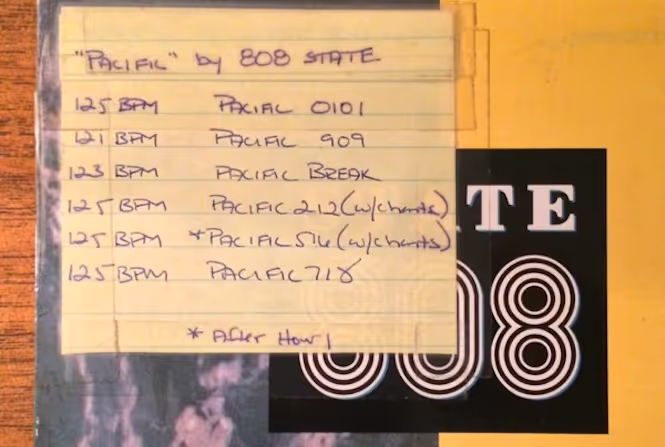 "PACIFIC" by 808 STATE
125 BPM PACIFIC 0101
121 BPM PACIFIC 909
123 BPM PACIFIC BREAK
125 BPM PACIFIC 212 (w/chants)
125 BPM *PACIFIC 516 (w/chants)
125 BPM PACIFIC 718
* After Hour
TE
808